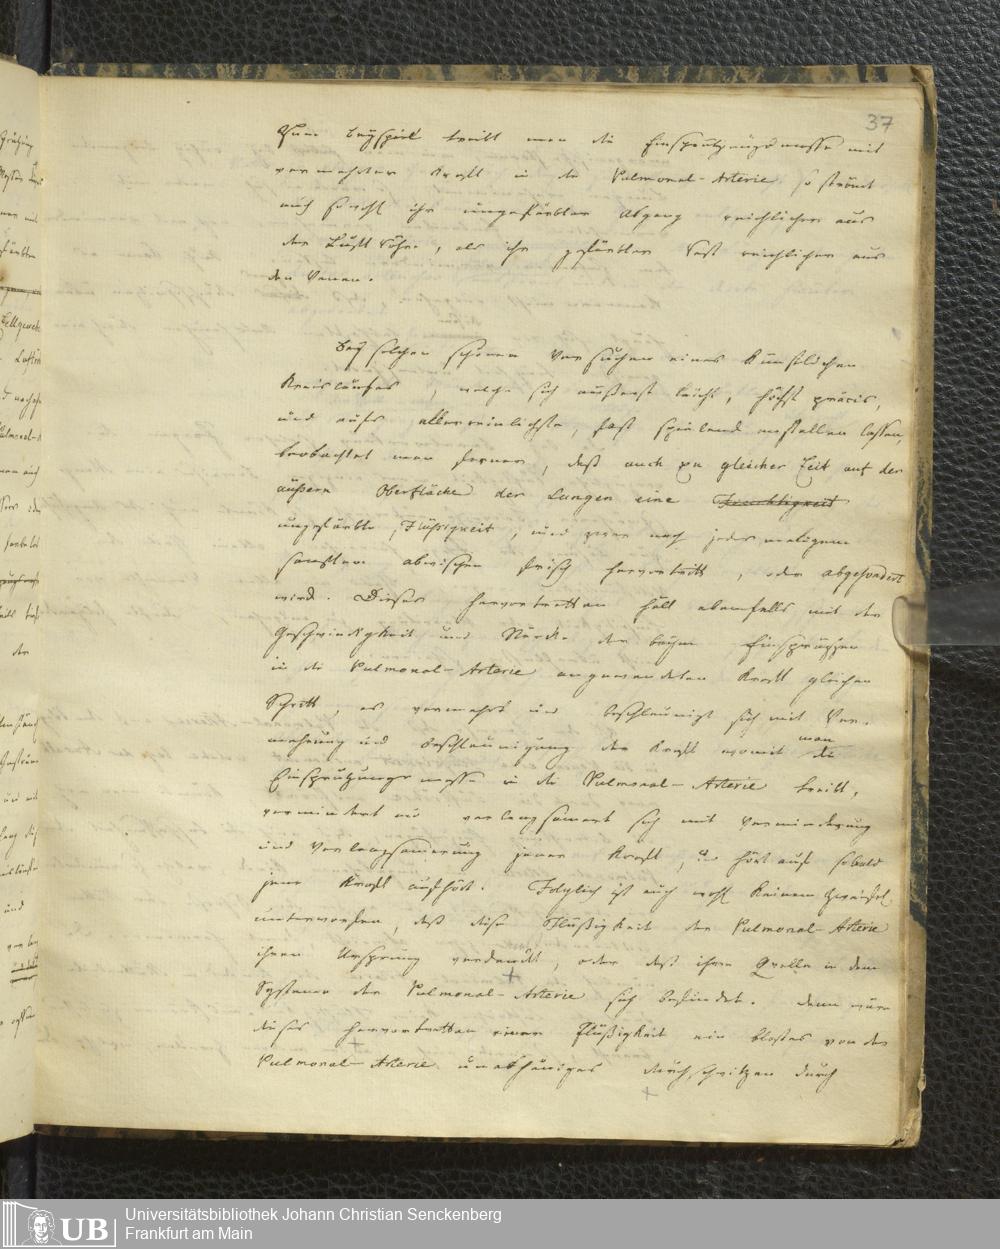 37
Zum Beyspiel treibt man die Einsprützungsmasse mit
vermehrter Kraft in die Pulmonal-Arterie so strömt
auch sowohl ihr ungefärbter Abgang reichlicher aus
der Luftröhre, als ihr gefärbter Saft reichlicher aus
den Venen.
Bey solchen schönen Versuchen eines künstlichen
Kreislaufes, welche sich äußerst leicht, höchst präcis,
und aufs allerreinlichste, fast spielend anstellen lassen,
beobachtet man ferner, daß auch zu gleicher Zeit auf der
äußern Oberfläche der Lungen eine Feuchtigkeit
ungefärbte Flüßigkeit, und zwar nach jedesmaligem
sanften abwischen frisch hervortritt, oder abgesondert
wird. Dieses hervortretten hält ebenfalls mit der
Geschwindigkeit und Stärke der beym Einsprützen
in die Pulmonal-Arterie angewendeten Kraft gleichen
Schritt, es vermehrt und beschleunigt sich mit Ver-
mehrung und Beschleunigung der Kraft womit man die
Einsprützungsmasse in die Pulmonal-Arterie treibt,
vermindert und verlangsamert sich mit Verminderung
und Verlangsamerung jener Kraft, und hört auf sobald
jene Kraft aufhört. Folglich ist auch wohl keinem Zweifel
unterworfen, daß diese Flüßigkeit der Pulmonal-Arterie
ihren Ursprung verdankt, oder daß ihre Quelle in dem
Systeme der Pulmonal-Arterie sich befindet. Denn wäre
dieses hervortretten einer Flüßigkeit ein bloßes von der
Pulmonal-Arterie unabhäniges durchschwitzen durch
UB
Universitätsbibliothek Johann Christian Senckenberg
Frankfurt am Main